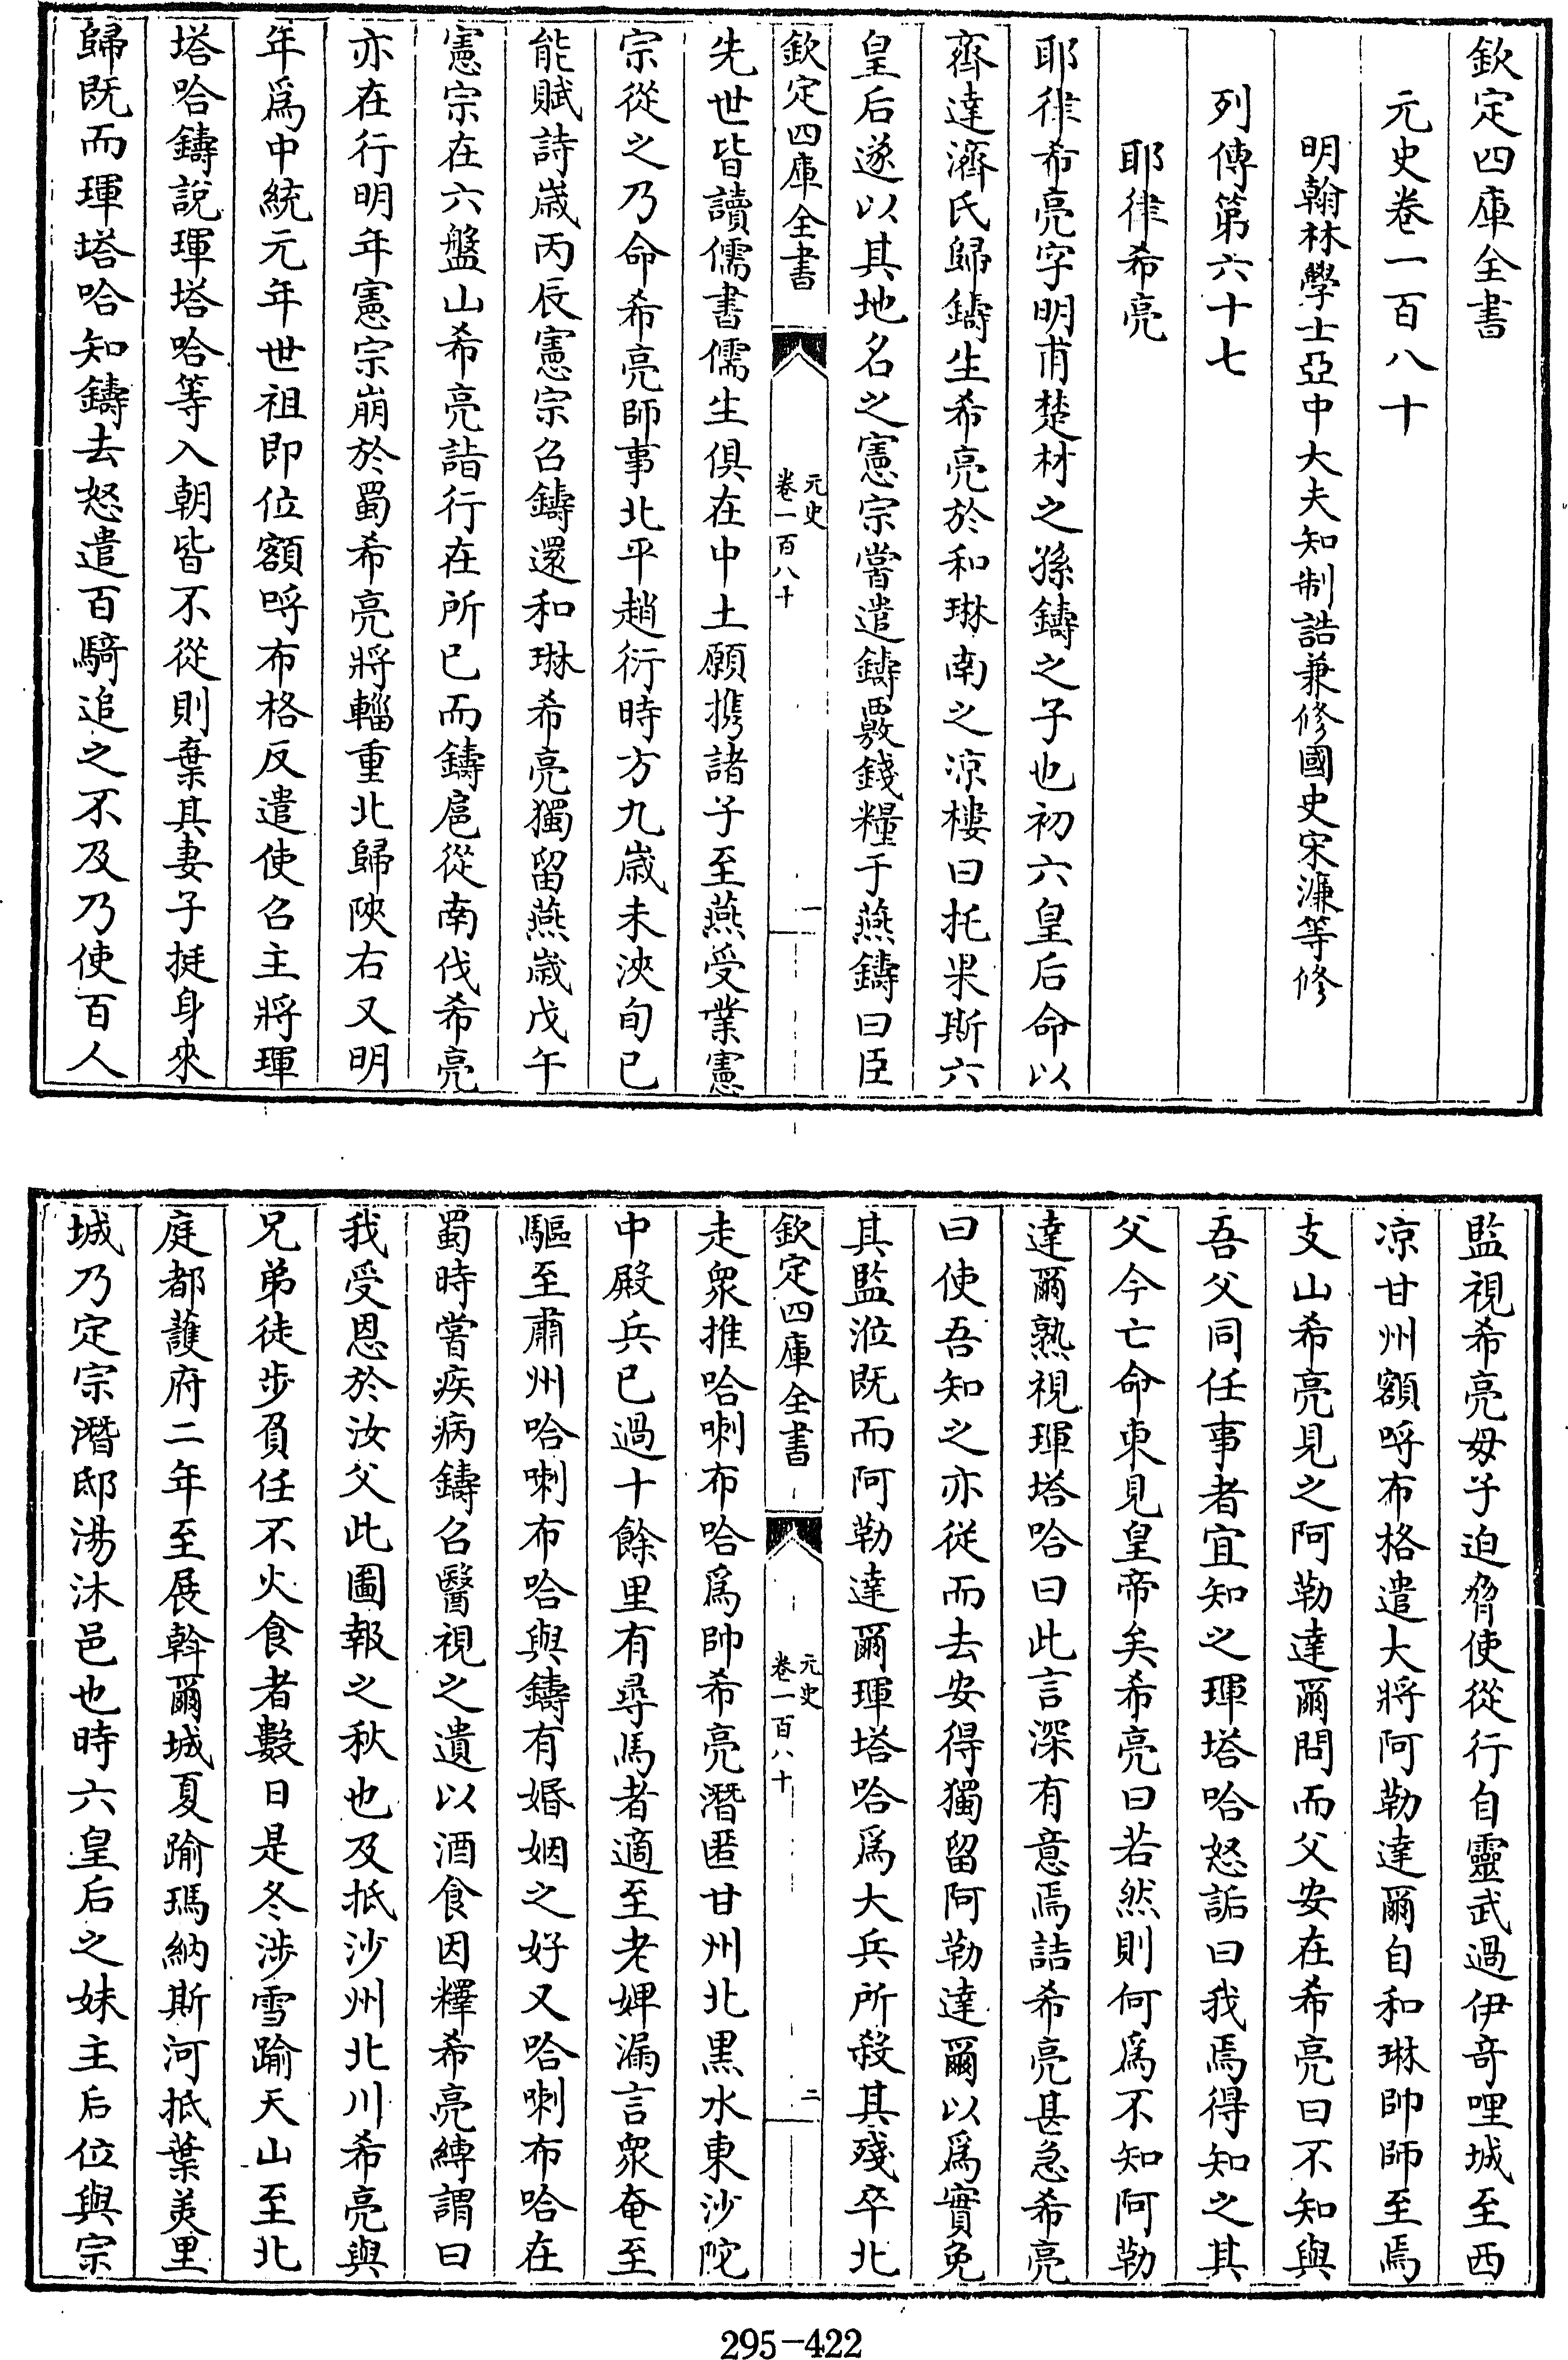 欽定四庫全書
元史卷一百八十
明翰林學士亞中大夫知制誥兼修國史宋濂等修
列傳第六十七
耶律希亮
耶律希亮字明甫楚材之孫鑄之子也初六皇后命以
齊達濟氏歸鑄生希亮於和琳南之凉樓曰托果斯六
皇后遂以其地名之憲宗嘗遣鑄覈錢糧于燕鑄曰臣
欽定四庫全書
元史
卷一百八十
一
先世皆讀儒書儒生俱在中土願携諸子至燕受業憲
宗從之乃命希亮師事北平趙衍時方九歲未浹旬已
能賦詩歲丙辰憲宗召鑄還和琳希亮獨留燕歲戊午
憲宗在六盤山希亮詣行在所已而鑄扈從南伐希亮
亦在行明年憲宗崩於蜀希亮將輜重北歸陜右又明
年爲中統元年世祖即位額哷布格反遣使召主將琿
塔哈鑄說琿塔哈等入朝皆不從則棄其妻子挺身來
歸既而琿塔哈知鑄去怒遣百騎追之不及乃使百人
監視希亮母子迫脅使從行自靈武過伊奇哩城至西
凉甘州額哷布格遣大將阿勒達爾自和琳帥師至焉
支山希亮見之阿勒達爾問而父安在希亮曰不知與
吾父同任事者宜知之琿塔哈怒詬曰我焉得知之其
父今亡命東見皇帝矣希亮曰若然則何爲不知阿勒
達爾熟視琿塔哈曰此言深有意焉詰希亮甚急希亮
曰使吾知之亦從而去安得獨留阿勒達爾以爲實免
其監涖既而阿勒達爾琿塔哈爲大兵所殺其殘卒北
欽定四庫全書
元史
卷一百八十
二
走衆推哈喇布哈爲帥希亮潛匿甘州北黑水東沙陀
中殿兵已過十餘里有尋馬者適至老婢漏言衆奄至
驅至肅州哈喇布哈與鑄有婚姻之好又哈喇布哈在
蜀時嘗疾病鑄召醫視之遺以酒食因釋希亮縛謂曰
我受恩於汝父此圖報之秋也及抵沙州北川希亮與
兄弟徒步負任不火食者數日是冬涉雪踰天山至北
庭都護府二年至展斡爾城夏踰瑪納斯河抵葉羙里
城乃定宗潛邸湯沐邑也時六皇后之妹主后位與宗
295-422